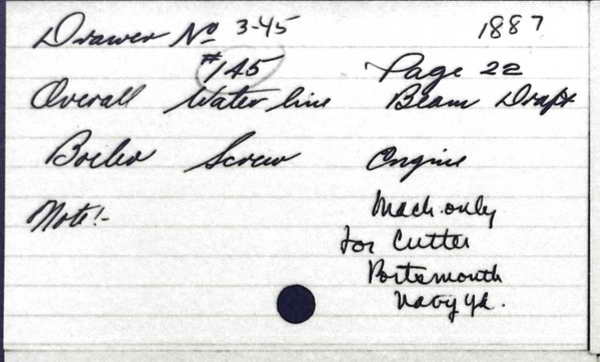 Drawer No 3-45 1887
#145 Page 22
Overall Water line Beam Draft
Boiler Screw Engine
Note:- Mach. only
for Cutter
Portsmouth
Navy Yd.